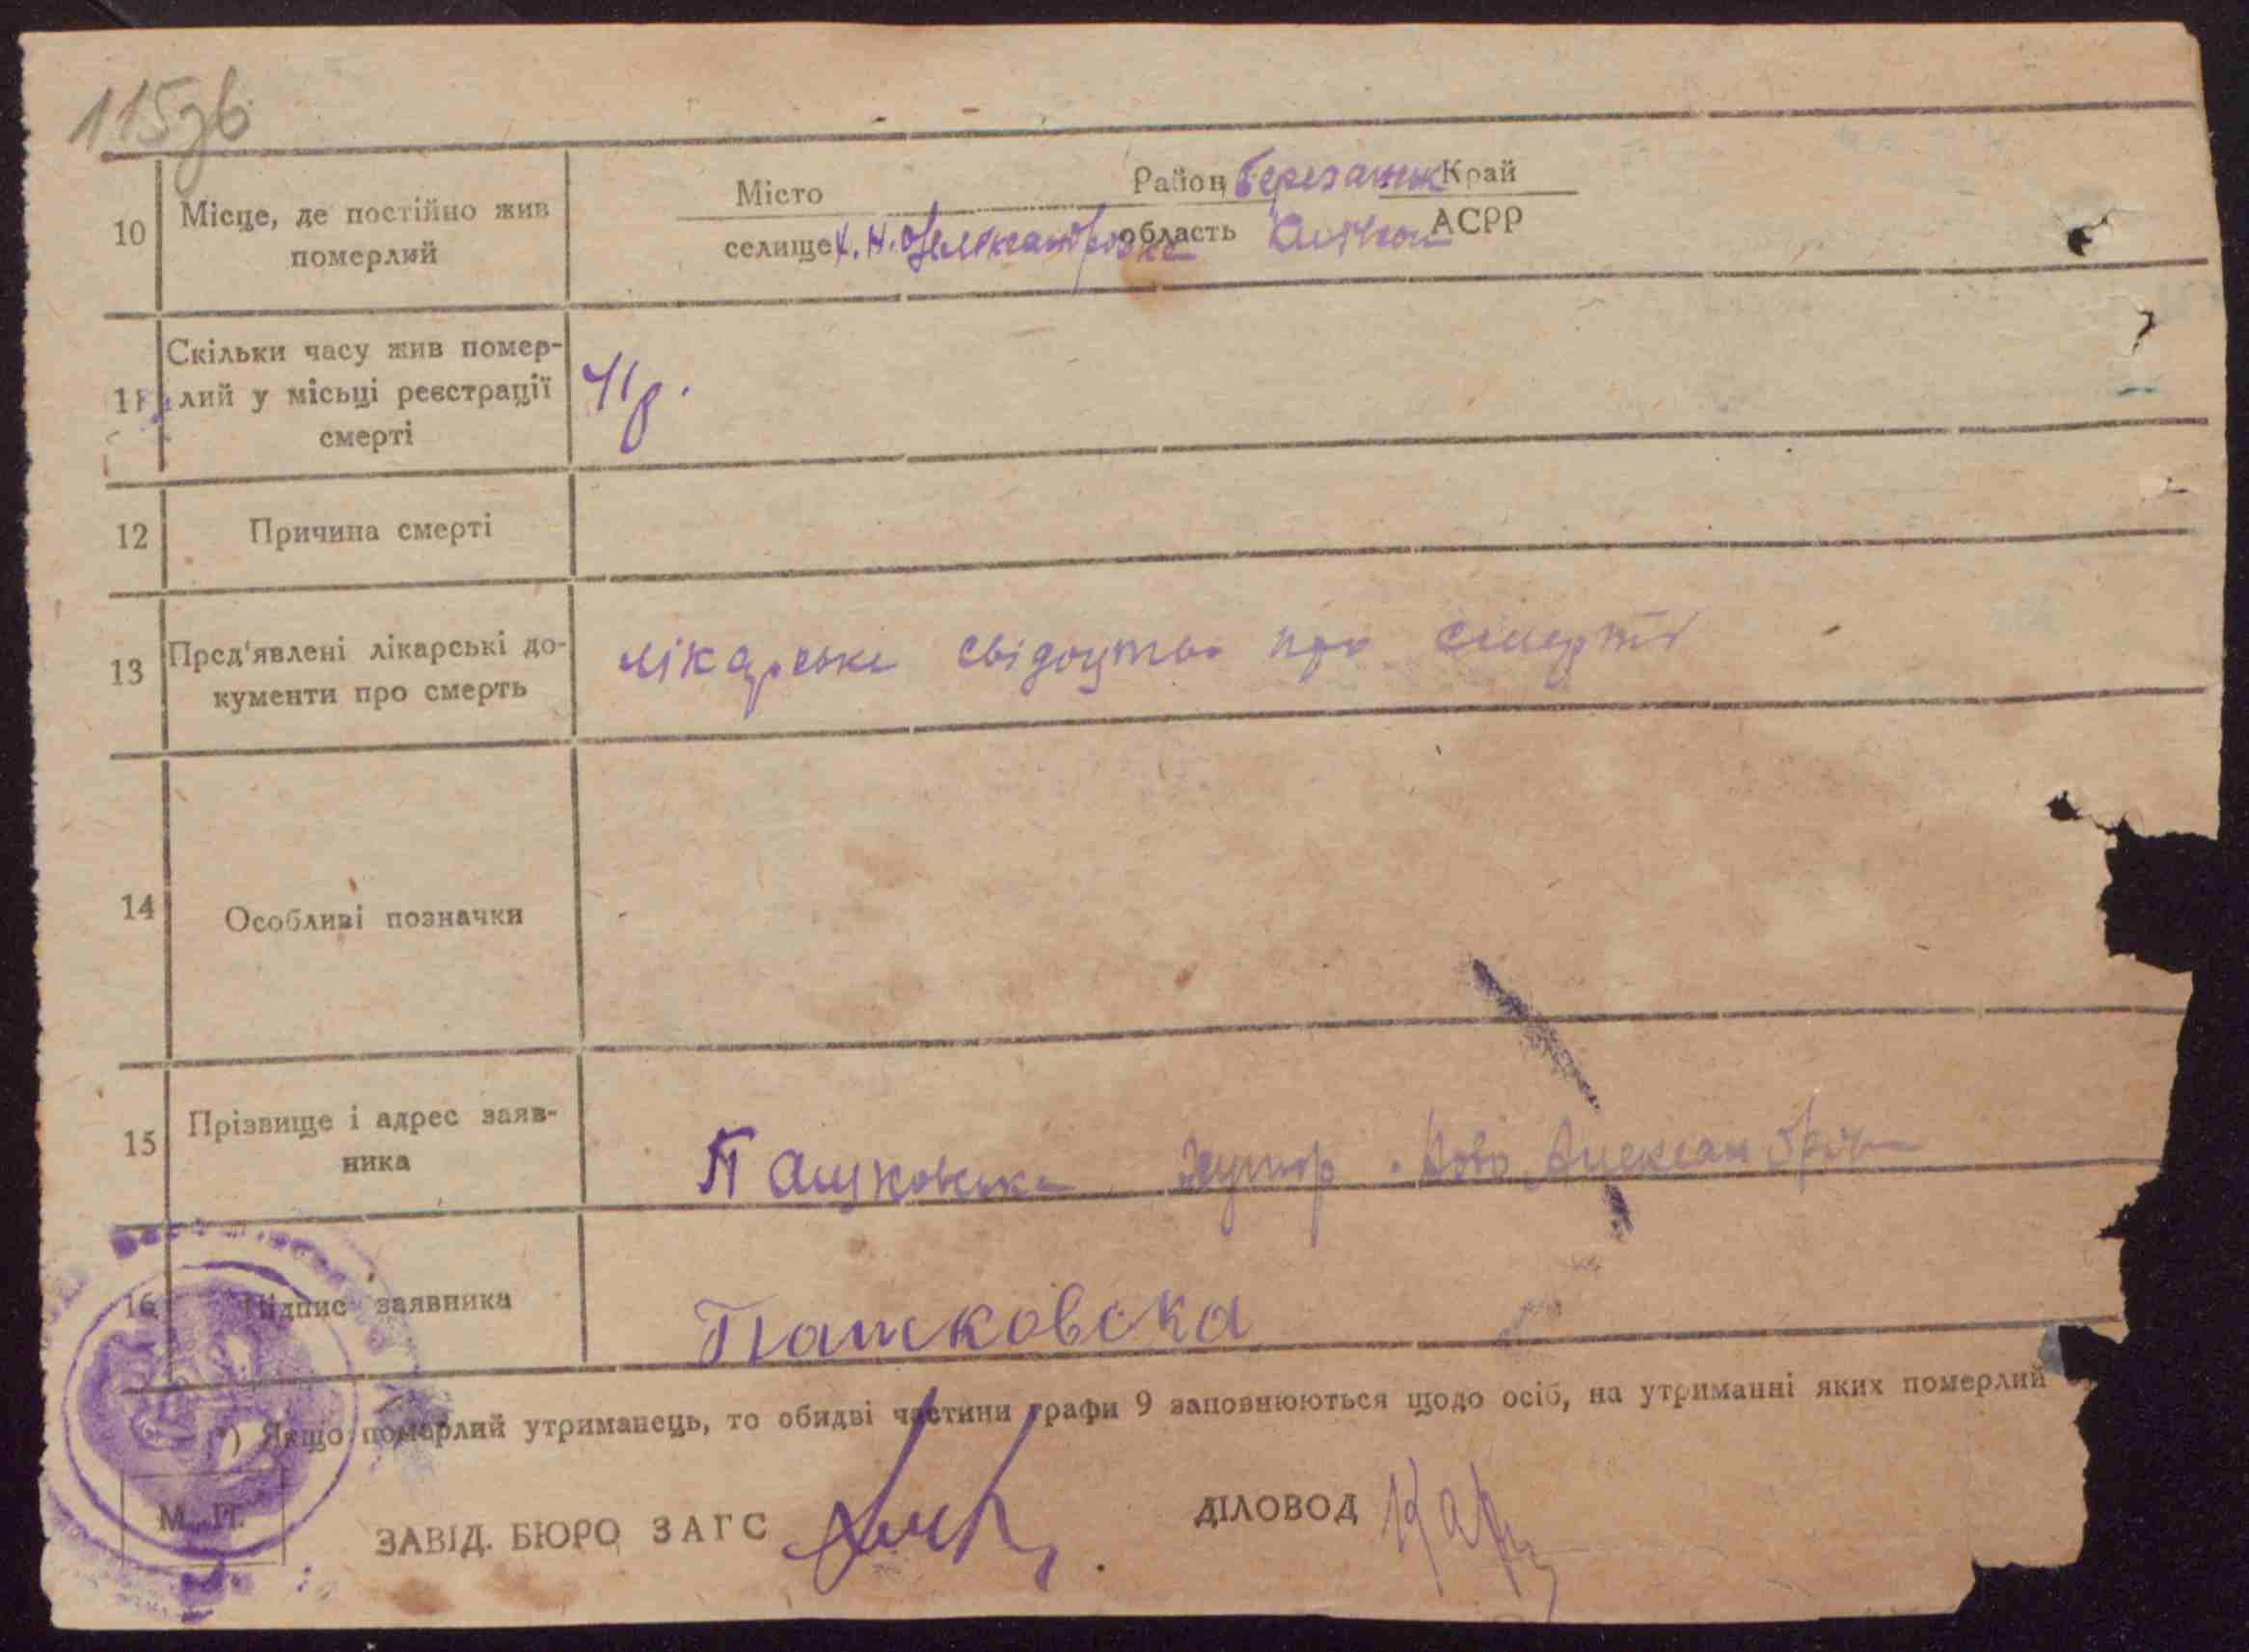 115зв
Місто Район Березанськ Край
10 Місце, де постійно жив селище х. Н. Олександровка область АСРР
померлий
Скільки часу жив помер-
11 лий у місьці реєстрації
смерті
12 Причина смерті
13 Пред'явлені лікарські до- лікарське свідоцтво про смерть
кументи про смерть
14 Особливі позначки
15 Прізвище і адрес заяв- хутор Ново
ника
16 Підпис заявника Пашковска
*) Якщо померлий утриманець, то обидві частини графи 9 заповнюються щодо осіб, на утриманні яких померлий
М. П.
ЗАВІД. БЮРО ЗАГС ДІЛОВОД